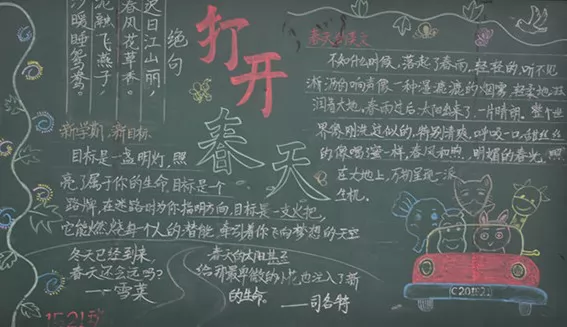 绝句
日江山丽，
春风花草香。
泥融飞燕子，
暖睡鸳鸯。
打开
春天
新学期，新目标
目标是一盏明灯，照
亮了属于你的生命，目标是一个
路牌，在迷路时为你指明方向，目标是一支火把，
它能燃烧每个人的潜能，牵引着你飞向梦想的天空
冬天已经到来
春天还会远吗？
——雪莱
春天的太阳甚至
给那最卑微的小花也注入了新
的生命。
——司各特
春天的
不知什么时候，落起了春雨，轻轻的，听不见
淅沥的响声像一种湿漉漉的烟雾，轻柔地滋
润着大地。春雨过后，太阳出来了，一片晴朗。整个世
界像刚洗过似的，特别清爽，呼吸一口甜丝丝
的像喝蜜一样，春风和煦，明媚的春光，照
在大地上，万物呈现一派
生机。
1521